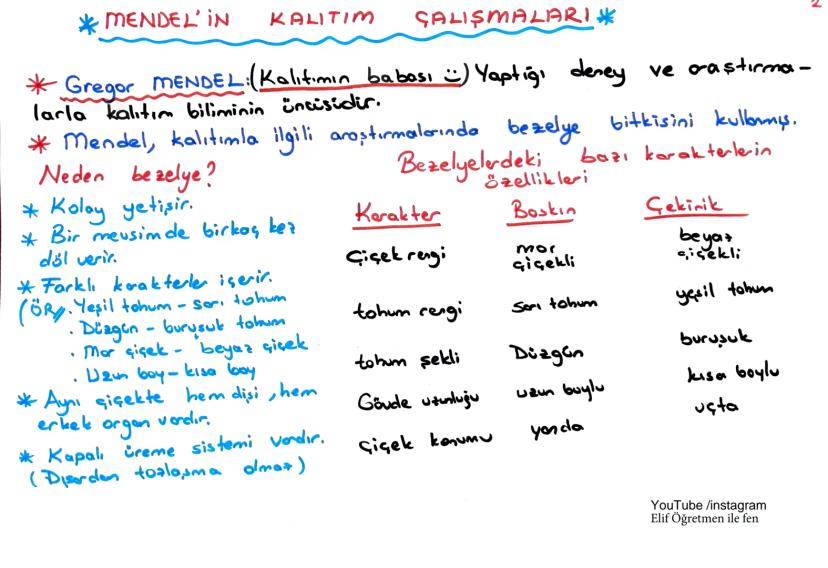 2
* MENDEL'İN KALITIM ÇALIŞMALARI *
* Gregor MENDEL: (Kalıtımın babası Ü) Yaptığı deney ve araştırma-
larla kalıtım biliminin öncüsüdür.
* Mendel, kalıtımla ilgili araştırmalarında bezelye bitkisini kullanmış.
Neden bezelye?
* Kolay yetişir.
* Bir mevsimde birkaç kez
döl verir.
* Farklı karakterler içerir.
(ÖR// . Yeşil tohum - sarı tohum
. Düzgün - buruşuk tohum
. Mor çiçek - beyaz çiçek
. Uzun boy - kısa boy
* Aynı çiçekte hem dişi, hem
erkek organ vardır.
* Kapalı üreme sistemi vardır.
(Dışarden tozlaşma olmaz)
Bezelyelerdeki bazı karakterlerin
özellikleri
Karakter Baskın Çekinik
Çiçek rengi mor çiçekli beyaz çiçekli
tohum rengi sarı tohum yeşil tohum
tohum şekli Düzgün buruşuk
Gövde uzunluğu uzun boylu kısa boylu
Çiçek konumu yanda uçta
YouTube /instagram
Elif Öğretmen ile fen